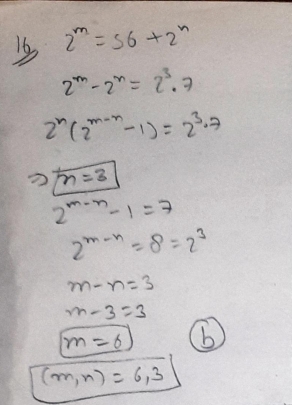 16 2^m = 56 + 2^n
2^m - 2^n = 2^3 . 7
2^n (2^{m-n} - 1) = 2^3 . 7
⇒ n = 3
2^{m-n} - 1 = 7
2^{m-n} = 8 = 2^3
m - n = 3
m - 3 = 3
m = 6
(b)
(m, n) = 6, 3